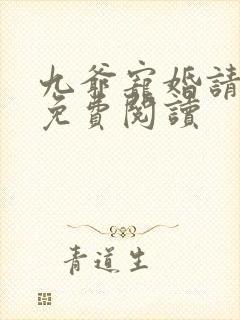 九爺寵婚請
免費閱讀
青道生